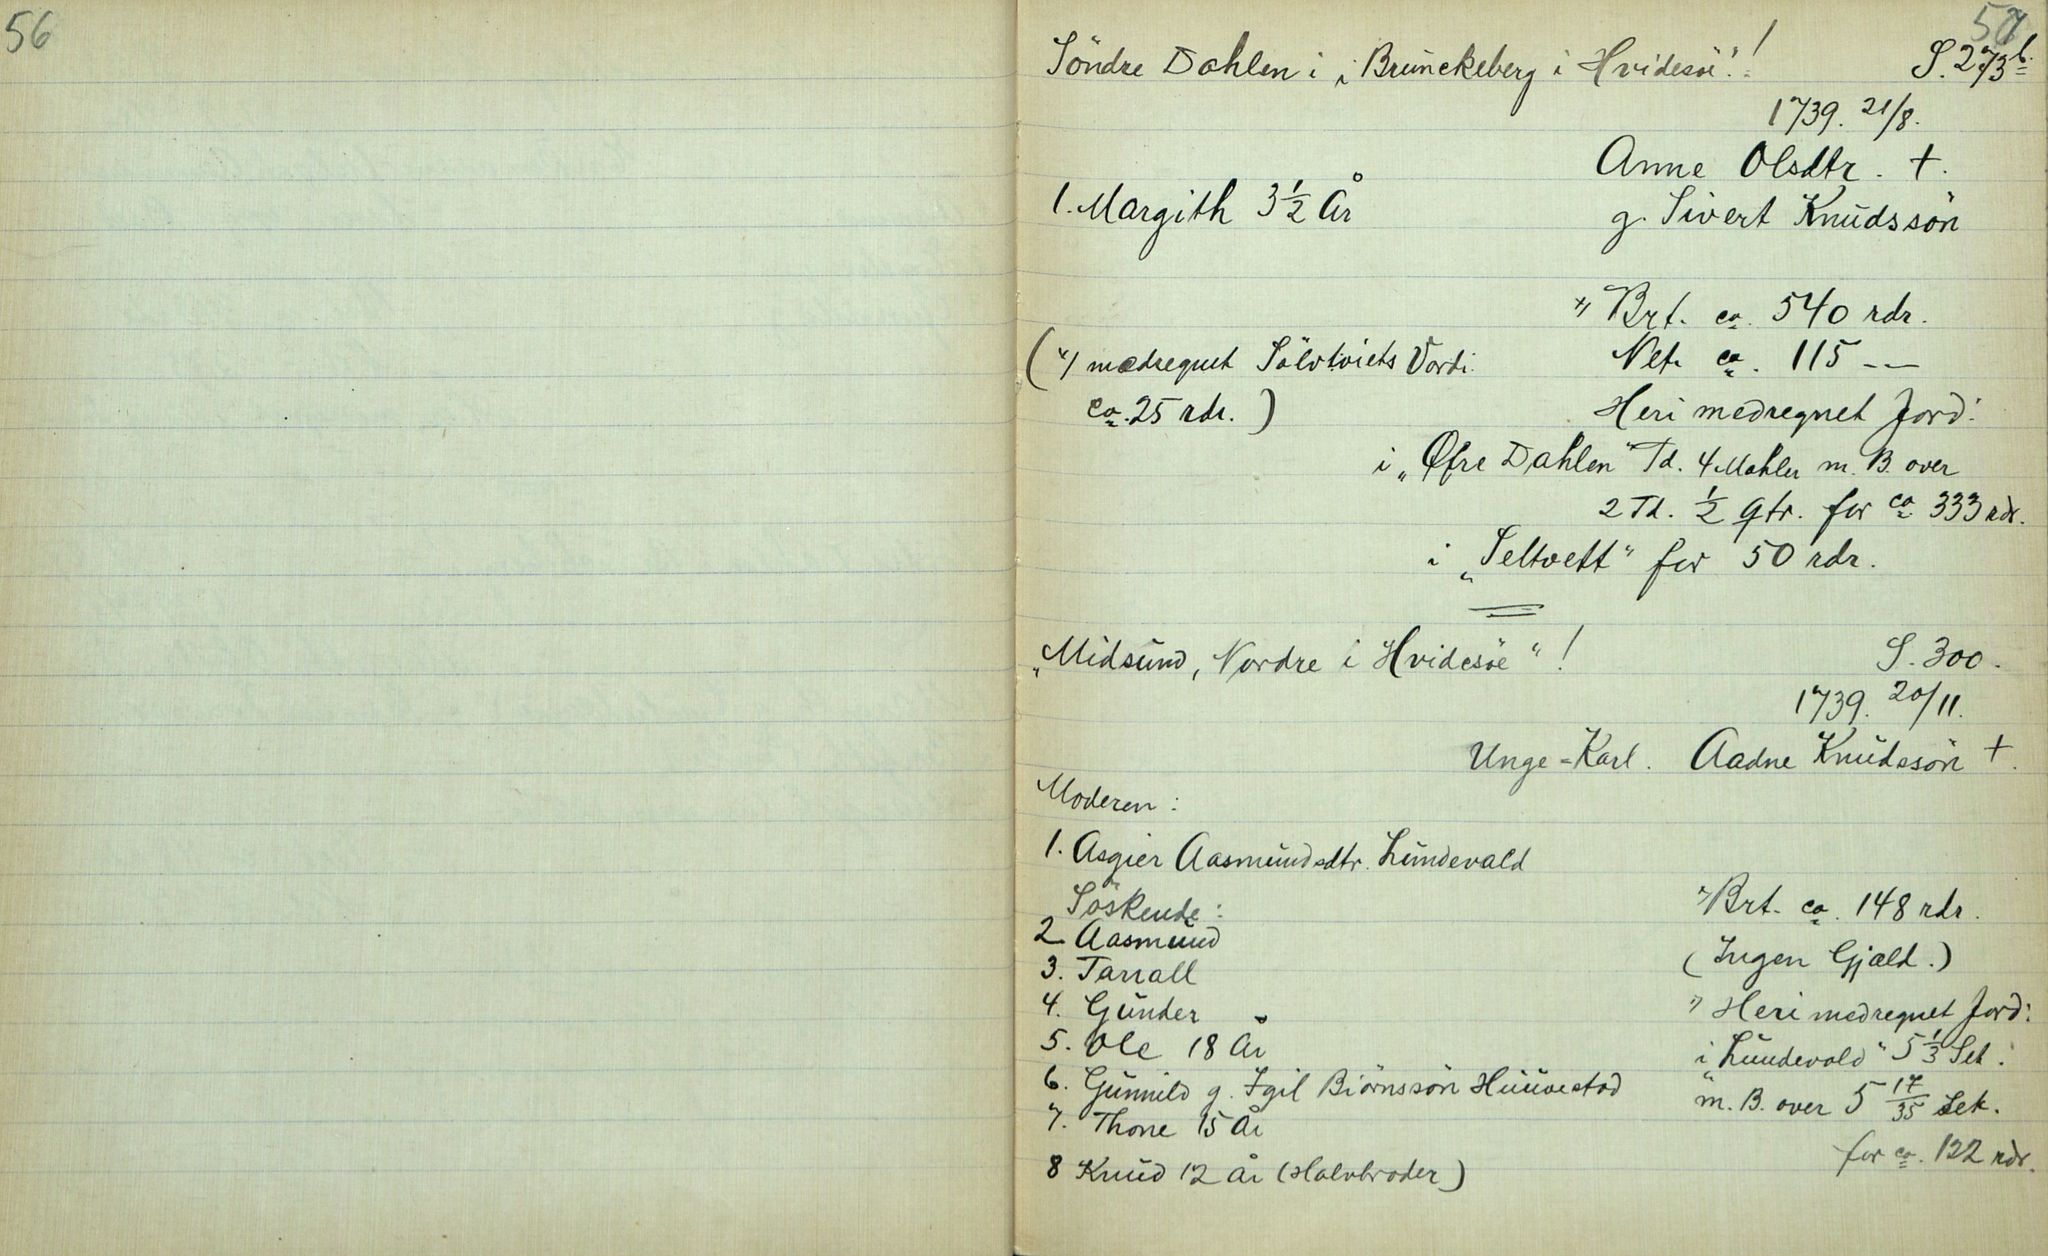 56
57
Söndre Dahlen i i Brunckeberg i Hvidesöe"! S. 273 b.
1739. 21/8.
Anne Olsdtr. +.
1. Margith 3 1/2 År
g. Sivert Knudssön
*) Brt. ca. 540 rdr.
(*) medregnet Sölvtöiets Værdi Net. ca. 115 --
ca. 25 rdr.) Heri medregnet Jord:
i „Øfre Dahlen" Td. 4 Mahler m. B. over
2 Td. 1/2 qtr. for ca. 333 rdr.
i „Seltvett" for 50 rdr.
„Midsund, Nordre i Hvidesöe"! S. 300.
1739. 20/11.
Unge-Karl. Aadne Knudssön +.
Moderen:
1. Asgier Aasmundsdtr. Lundevald
Söskende:
*) Brt. ca. 148 rdr.
2 Aasmund
(Ingen Gjæld.)
3. Tarrall
4. Gunder
*) Heri medregnet Jord:
5. Ole 18 År
i „Lundevald" 5 1/3 Set.
6. Gunnild g. Igil Biörnssön Huuvestad
m. B. over 5 17/35 Sek.
7. Thone 15 År
for ca. 122 rdr.
8 Knud 12 År (Halvbroder)